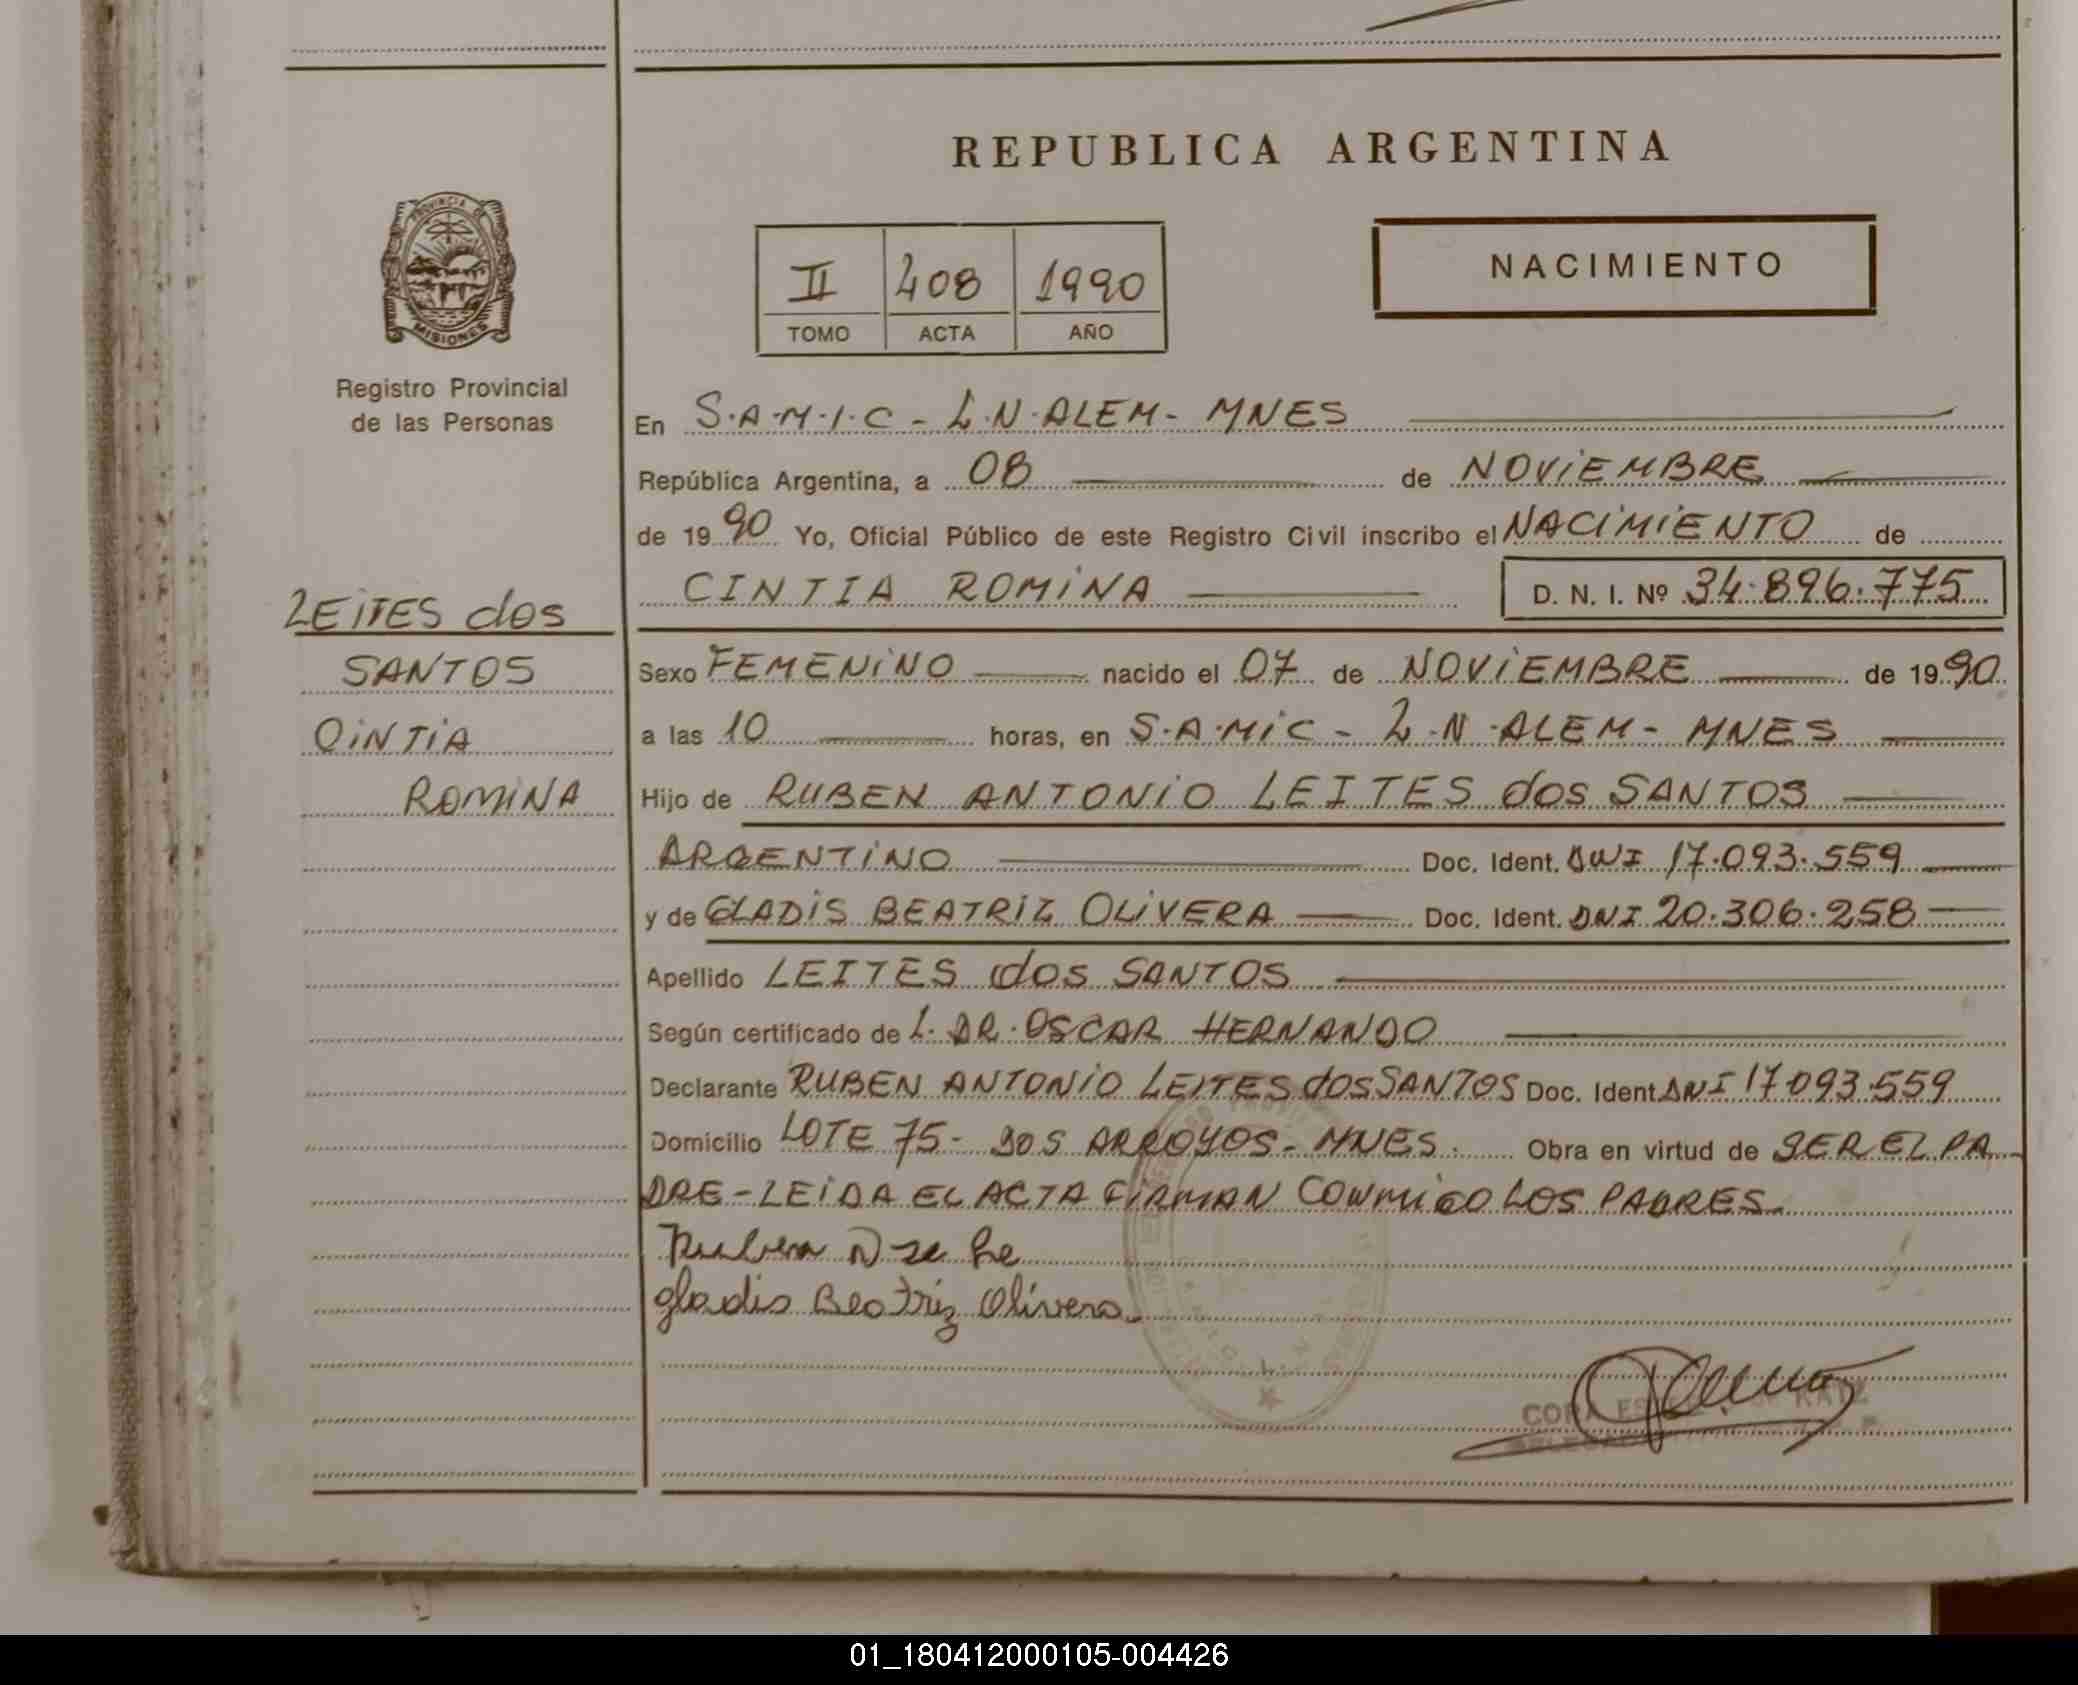 REPUBLICA ARGENTINA
II 408 1990
TOMO ACTA AÑO
NACIMIENTO
PROVINCIA DE
MISIONES
Registro Provincial
de las Personas
LEITES dos
SANTOS
CINTIA
ROMINA
En S.A.M.I.C - L.N.ALEM - MNES
República Argentina, a 08 de NOVIEMBRE
de 1990 Yo, Oficial Público de este Registro Civil inscribo el NACIMIENTO de
CINTIA ROMINA D. N. I. Nº 34.896.775
Sexo FEMENINO nacido el 07 de NOVIEMBRE de 1990
a las 10 horas, en S.A.MIC - L.N.ALEM - MNES
Hijo de RUBEN ANTONIO LEITES dos SANTOS
ARGENTINO Doc. Ident. DNI 17.093.559
y de GLADIS BEATRIZ OLIVERA Doc. Ident. DNI 20.306.258
Apellido LEITES dos SANTOS
Según certificado de L. DR. OSCAR HERNANDO
Declarante RUBEN ANTONIO LEITES dos SANTOS Doc. Ident DNI 17.093.559
Domicilio LOTE 75 - DOS ARROYOS - MNES. Obra en virtud de SER EL PA
DRE - LEIDA EL ACTA FIRMAN CONMIGO LOS PADRES.
Ruben
gladis Beatriz Olivera
01_180412000105-004426